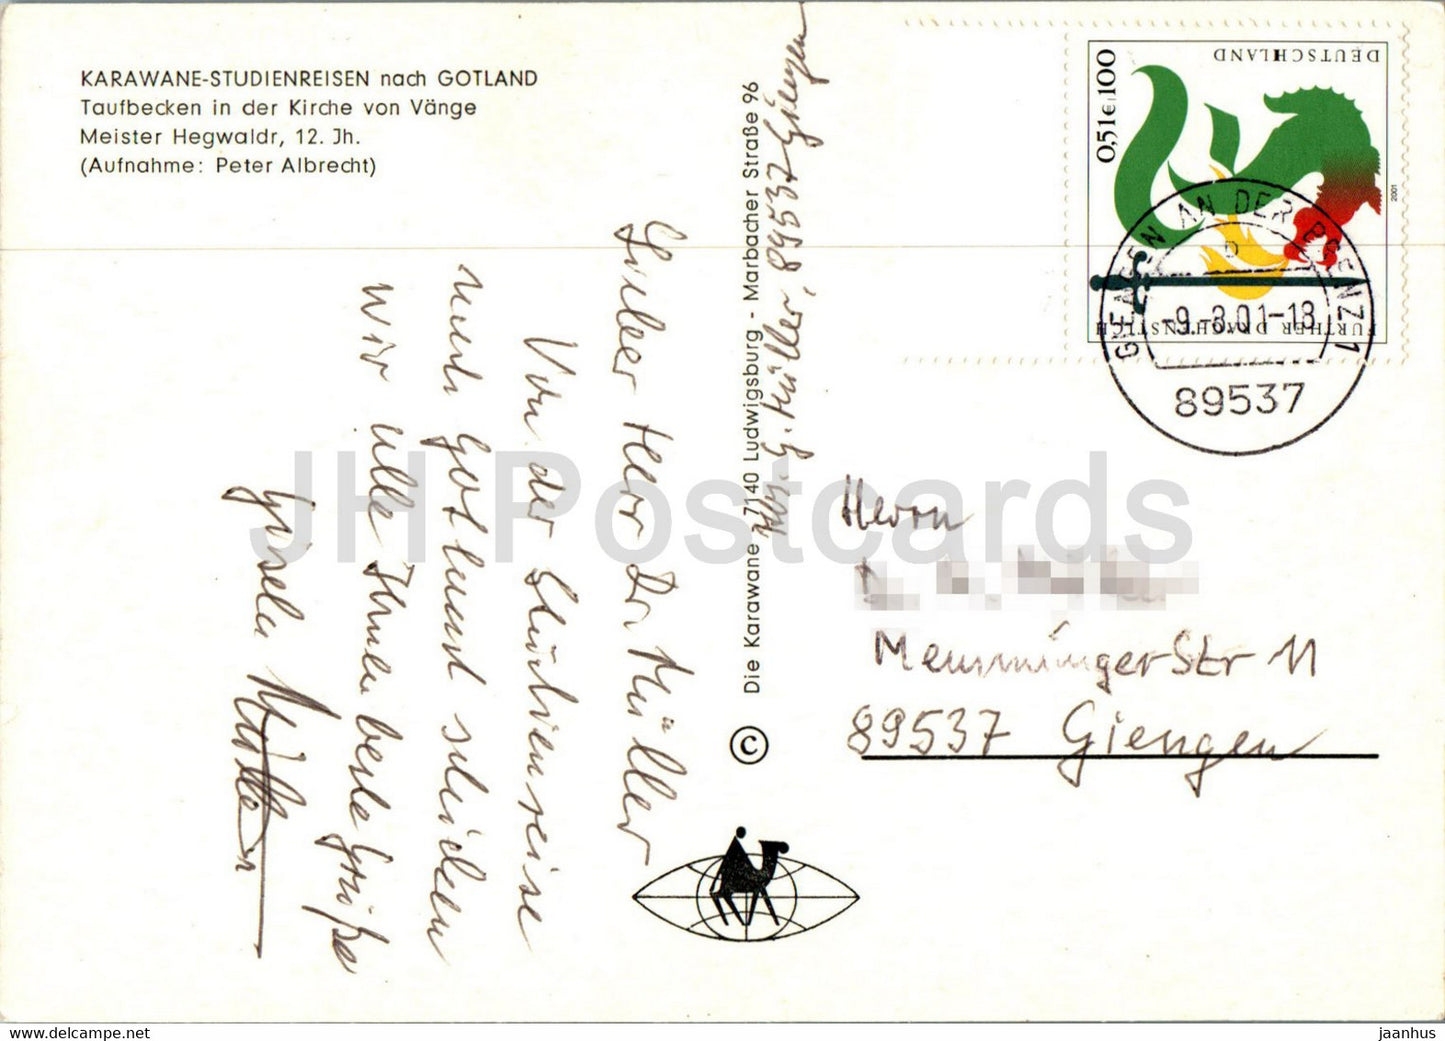 KARAWANE-STUDIENREISEN nach GOTLAND
Taufbecken in der Kirche von Vänge
Meister Hegwaldr, 12. Jh.
(Aufnahme: Peter Albrecht)
Lieber Herr Dr. Müller
Von der Studienreise
nach Gotland schicken
wir alle Ihnen beste Grüße
Gisela
Die Karawane - 7140 Ludwigsburg - Marbacher Straße 96
G. Müller, 89537 Giengen
DEUTSCHLAND
0,51€ 100
2001
FURTHER DRACHENSTICH
GIENGEN AN DER BRENZ 1
b
-9.-8.01-18
89537
Herrn
Memminger Str 11
89537 Giengen
©
JH Postcards
www.jaanhus-postcards.com
jaanhus